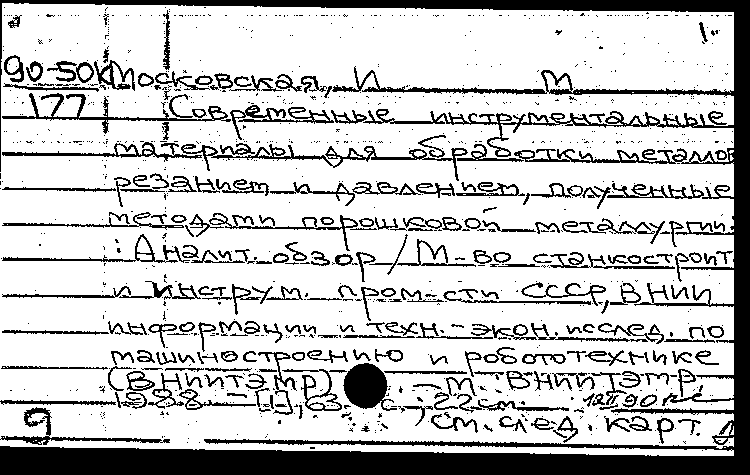 1.
90-50к Московская, И М
177 Современные инструментальные
материалы для обработки металлов
резанием и давлением, полученные
методами порошковой металлургии:
: Аналит. обзор / М-во станкостроит.
и инструм. пром-сти СССР, ВНИИ
информации и техн.-экон. исслед. по
машиностроению и робототехнике
(ВНИИТЭМР). - М.: ВНИИТЭМР,
1988 - [1], 63 с.; 22 см.
9 см. след. карт.